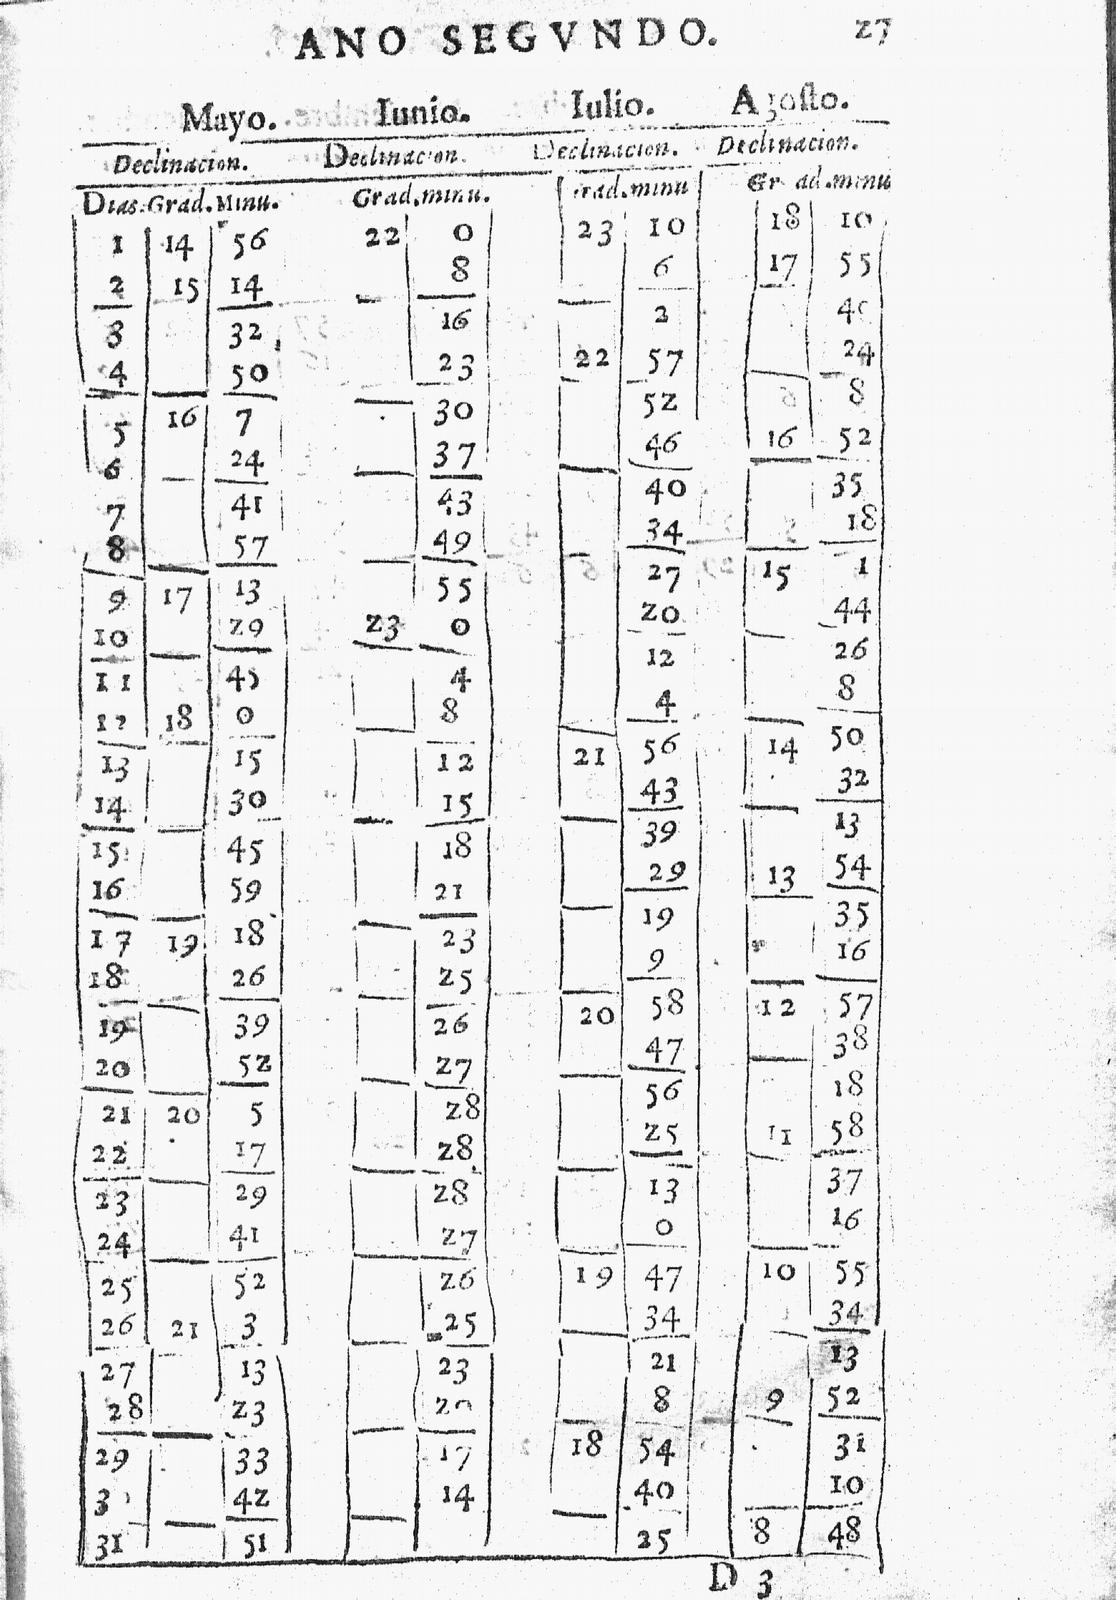 ANO SEGVNDO. 27
Mayo. Iunio. Iulio. Agosto.
Declinacion. Declinacion. Declinacion. Declinacion.
Dias. Grad. Minu. Grad. minu. Grad. minu Grad. minu
1 14 56 22 0 23 10 18 10
2 15 14 8 6 17 55
3 32 16 2
4 50 23 22 57 24
5 16 7 30 52 8
6 24 37 46 16 52
7 41 43 40 35
8 57 49 34 18
9 17 13 55 27 15 1
10 29 23 0 20 44
11 45 4 12 26
12 18 0 8 4 8
13 15 12 21 56 14 50
14 30 15 43 32
15 45 18 39 13
16 59 21 29 13 54
17 19 18 23 19 35
18 26 25 9 16
19 39 26 20 58 12 57
20 52 27 47 38
21 20 5 28 56 18
22 17 28 25 11 58
23 29 28 13 37
24 41 27 0 16
25 52 26 19 47 10 55
26 21 3 25 34 34
27 13 23 21 13
28 23 20 8 9 52
29 33 17 18 54 31
3 42 14 40 10
31 51 25 8 48
D 3